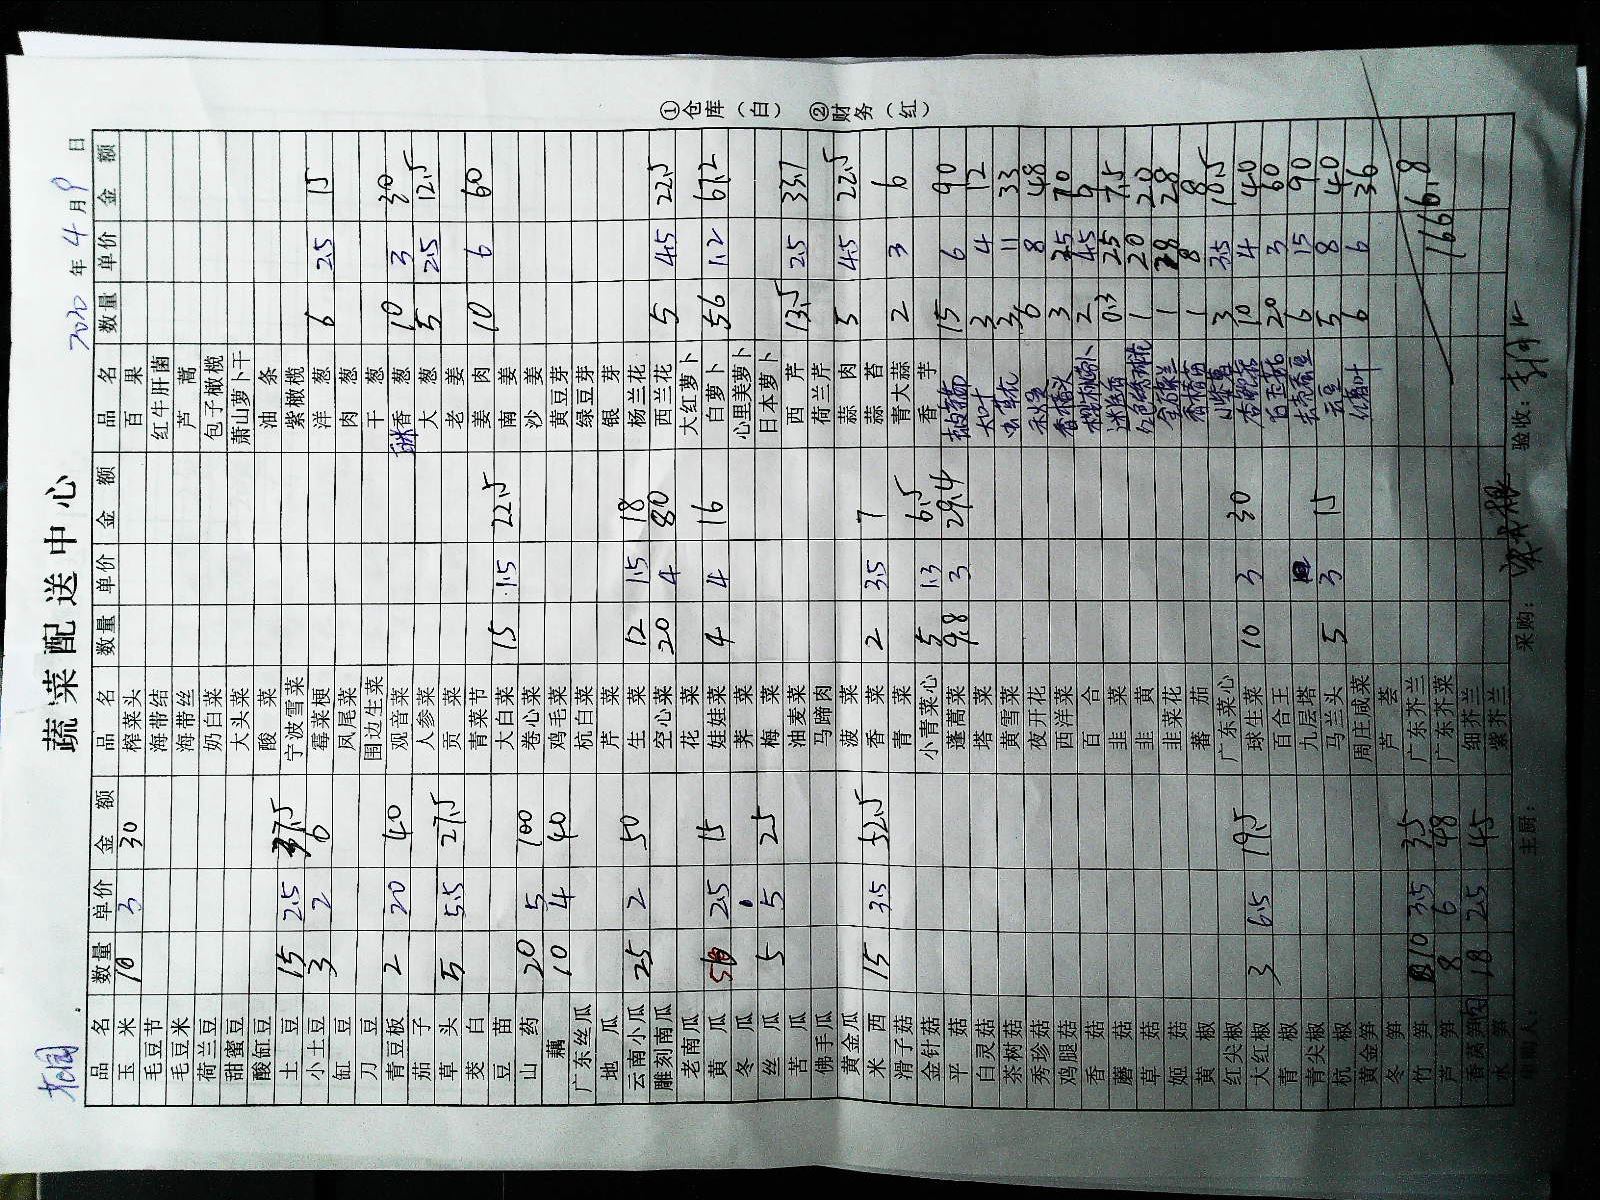 蔬菜配送中心
花园
2020年4月9日
品名 数量 单价 金额 品名 数量 单价 金额 品名 数量 单价 金额
玉米 10 3 30 榨菜头 百果
毛豆节 海带结 红牛肝菌
毛豆米 海带丝 芦蒿
荷兰豆 奶白菜 包子橄榄
甜蜜豆 大头菜 萧山萝卜干
酸缸豆 酸菜 油条
土豆 15 2.5 37.5 宁波雪菜 紫橄榄
小土豆 3 2 6 霉菜梗 洋葱 6 2.5 15
缸豆 凤尾菜 肉葱
刀豆 围边生菜 干葱
青豆板 2 20 40 观音菜 香葱 10 3 30
茄子 人参菜 大葱 5 2.5 12.5
草头 5 5.5 27.5 贡菜 老姜
茭白 青菜节 姜肉 10 6 60
豆苗 大白菜 15 1.5 22.5 南姜
山药 20 5 100 卷心菜 沙姜
藕 10 4 40 鸡毛菜 黄豆芽
广东丝瓜 杭白菜 绿豆芽
地瓜 芹菜 银芽
云南小瓜 25 2 50 生菜 12 1.5 18 杨兰花
雕刻南瓜 空心菜 20 4 80 西兰花 5 4.5 22.5
老南瓜 花菜 大红萝卜
黄瓜 2.5 15 娃娃菜 4 4 16 白萝卜 56 1.2 67.2
冬瓜 荠菜 心里美萝卜
丝瓜 5 5 25 梅菜 日本萝卜
苦瓜 油麦菜 西芹 13.5 2.5 33.7
佛手瓜 马蹄肉 荷兰芹
黄金瓜 菠菜 蒜肉 5 4.5 22.5
米西 15 3.5 52.5 香菜 2 3.5 7 蒜苔
滑子菇 青菜 青大蒜 2 3 6
金针菇 小青菜心 5 1.3 6.5 香芋
平菇 蓬蒿菜 9.8 3 29.4 15 6 90
白灵菇 塔菜 3 4 12
茶树菇 黄雪菜 3 11 33
秀珍菇 夜开花 6 8 48
鸡腿菇 西洋菜 3 70
香菇 百合 2 4.5 9
蘑菇 韭菜 0.3 25 7.5
草菇 韭黄 1 20 20
姬菇 韭菜花 1 28 28
黄椒 蕃茄 1 8 8
红尖椒 广东菜心 3 3.5 10.5
大红椒 3 6.5 19.5 球生菜 10 3 30 10 4 40
青椒 百合王 20 3 60
青尖椒 九层塔 6 15 90
杭椒 马兰头 5 3 15 5 8 40
黄金笋 周庄咸菜 6 6 36
冬笋 芦荟
竹笋 10 3.5 35 广东芥兰
芦笋 8 6 48 广东芥菜 1666.8
香莴笋 18 2.5 45 细芥兰
水笋 紫芥兰
主厨： 采购： 验收：
①仓库（白） ②财务（红）